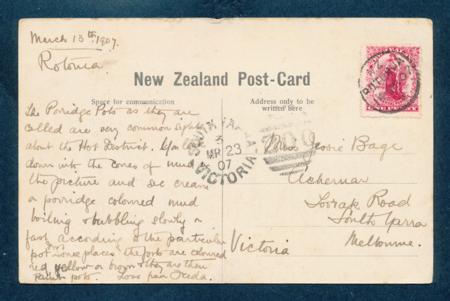 March 13th 1907.
Rotorua
New Zealand Post-Card
Space for communication
Address only to be
written here.
The Porridge Pots as they are
called are very common sights
about the Hot District. You
down into the cones of mud
the picture and see cream
or porridge coloured mud
boiling & bubbling slowly or
fast according to the particular
pot. Some places the pots are coloured
red, yellow or brown & they are then
Paint pots. Love from
SOUTH YARRA
3
MR 23
07
VICTORIA
Miss Jessie Bage
Achernar
Toorak Road
South Yarra
Melbourne.
Victoria